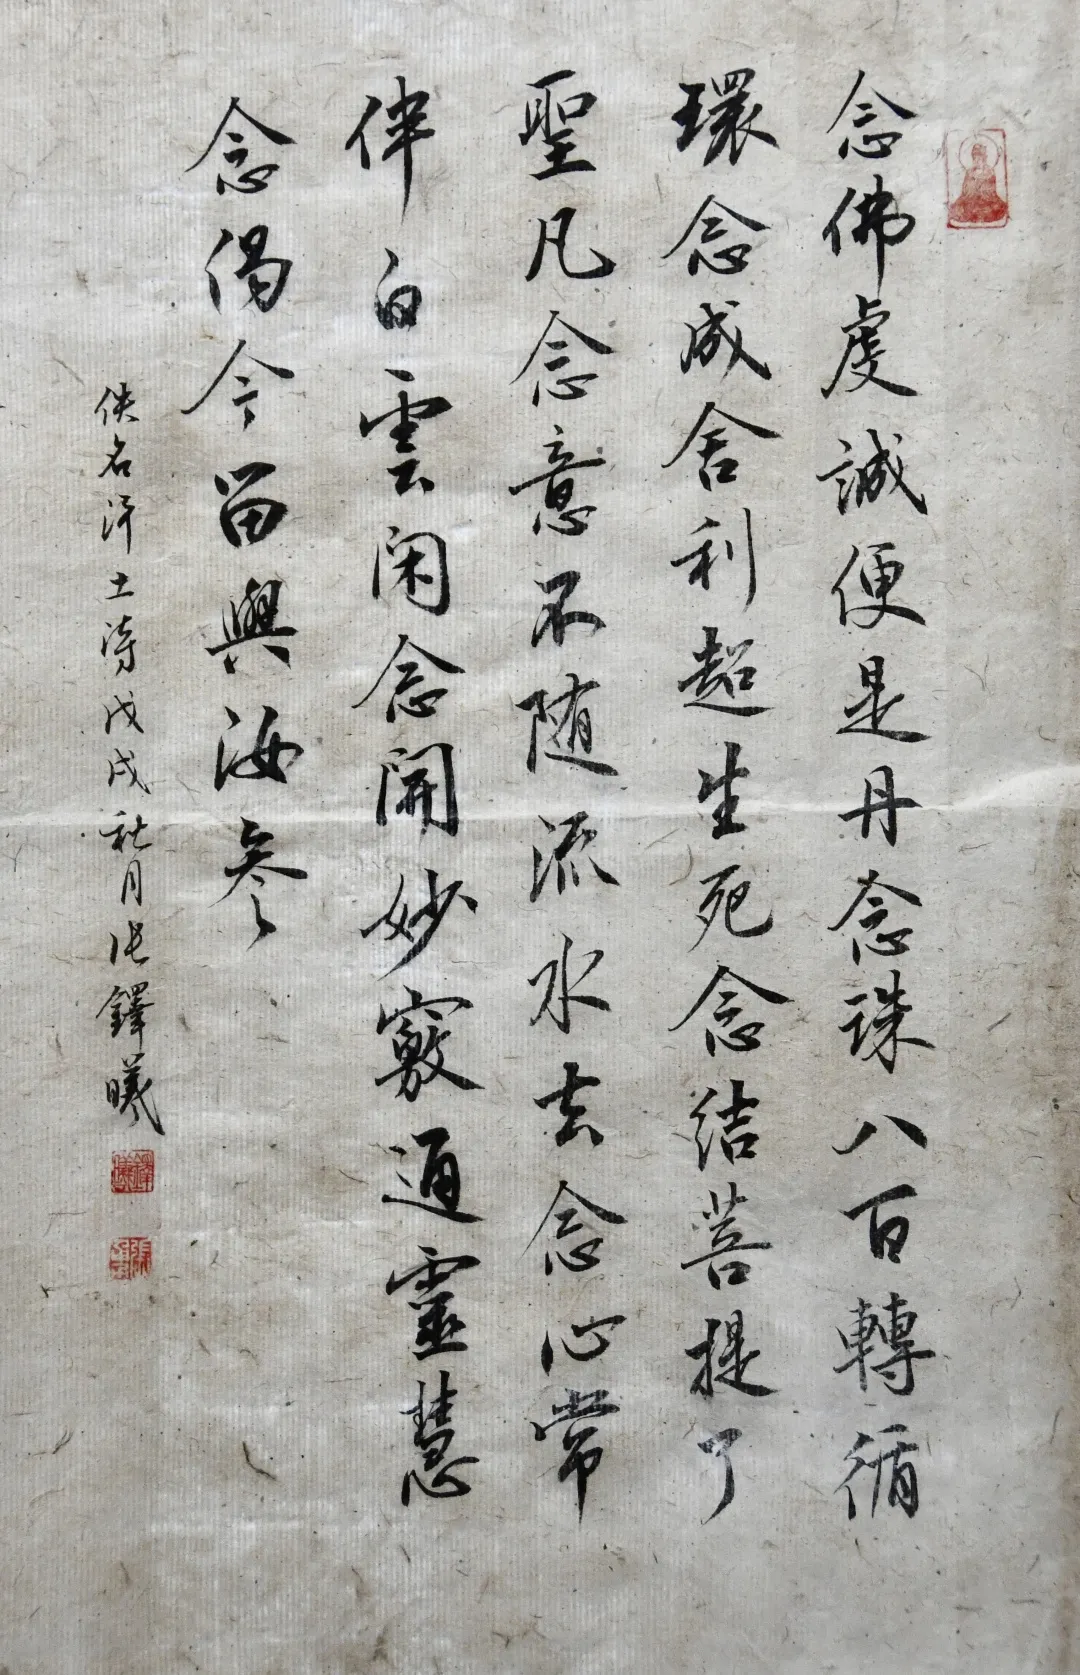 念佛虔誠便是丹念珠八百轉循
環念成舍利超生死念結菩提了
聖凡念意不随流水去念心常
伴白雲閑念開妙竅通靈慧
念偈今留與汝參
佚名浄土诗戊戌秋月张鐸曦